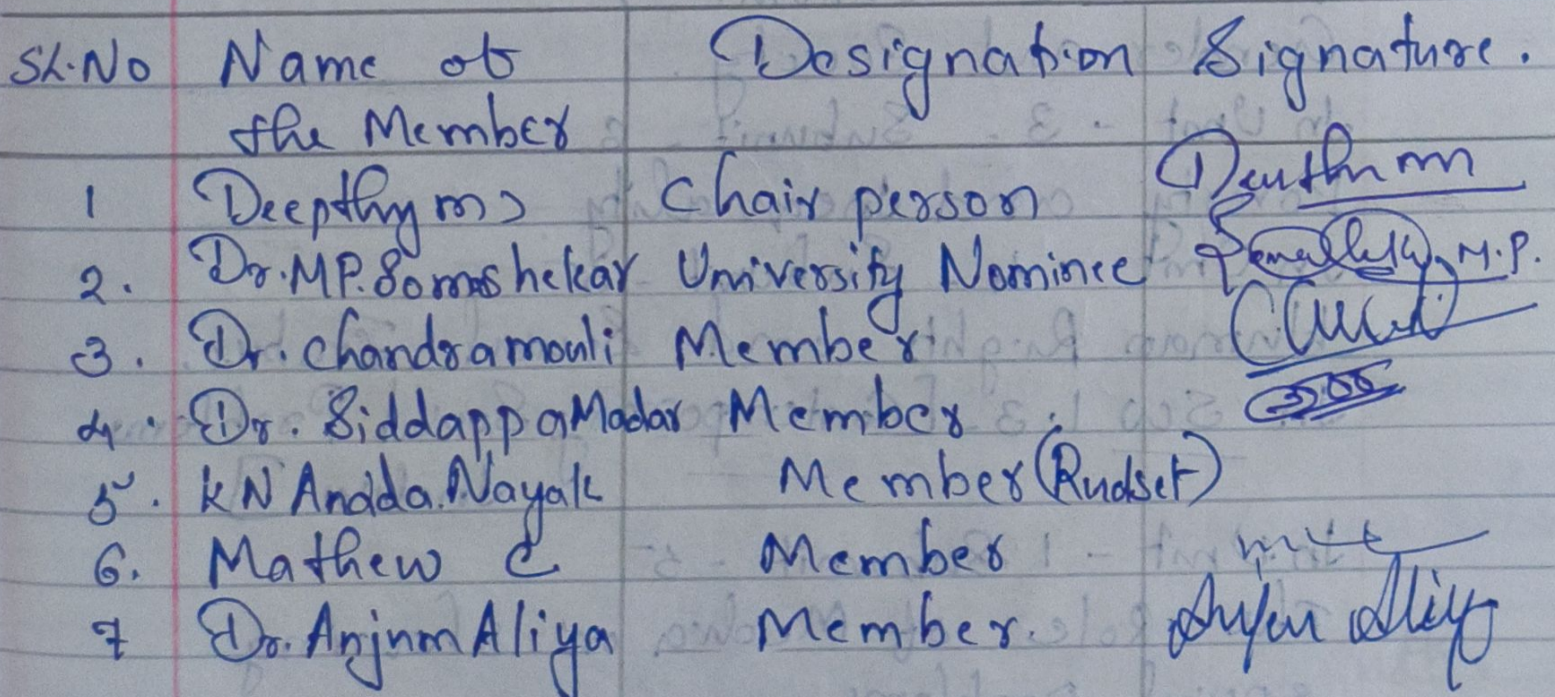 Sl.No Name of Designation Signature.
the Member
1 Deepthy m Chair person
2. Dr.MP.Somshekar University Nominee M.P.
3. Dr. Chandramouli Member
4. Dr. Siddappa Madar Member
5. KN Anada.Nayak Member (Rudset)
6. Mathew C Member
7 Dr. Anjum Aliya Member.